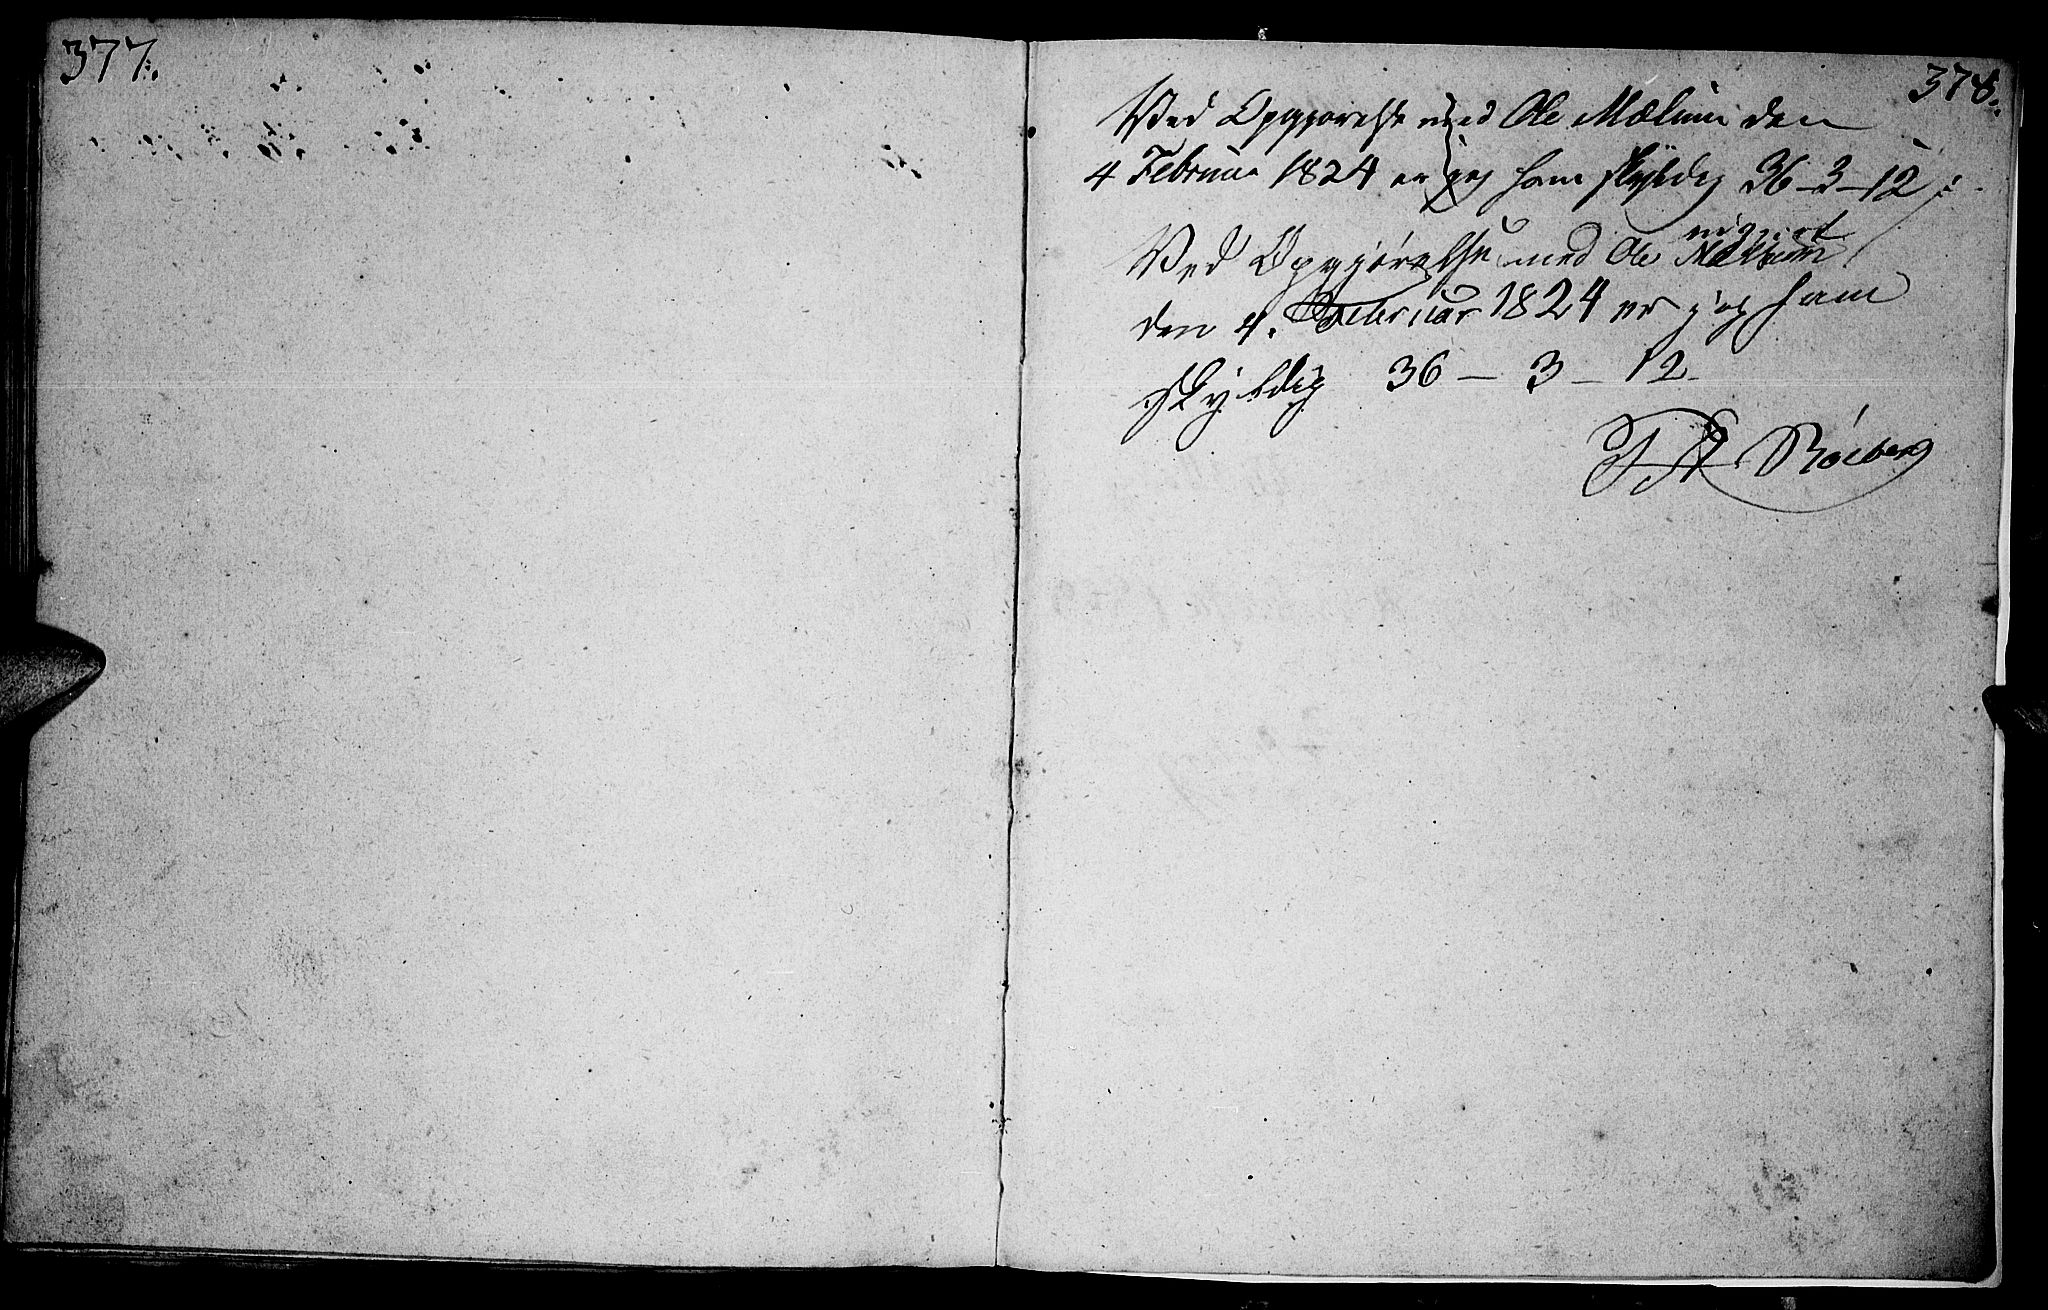 377.
378.
Ved Opgjørelse med Ole Mælum den
4 Februar 1824 er jeg ham skyldig 36-3-12
Ved Opgjørelse med Ole Mælum
den 4. Februar 1824 er jeg ham
skyldig 36 - 3 - 12 -